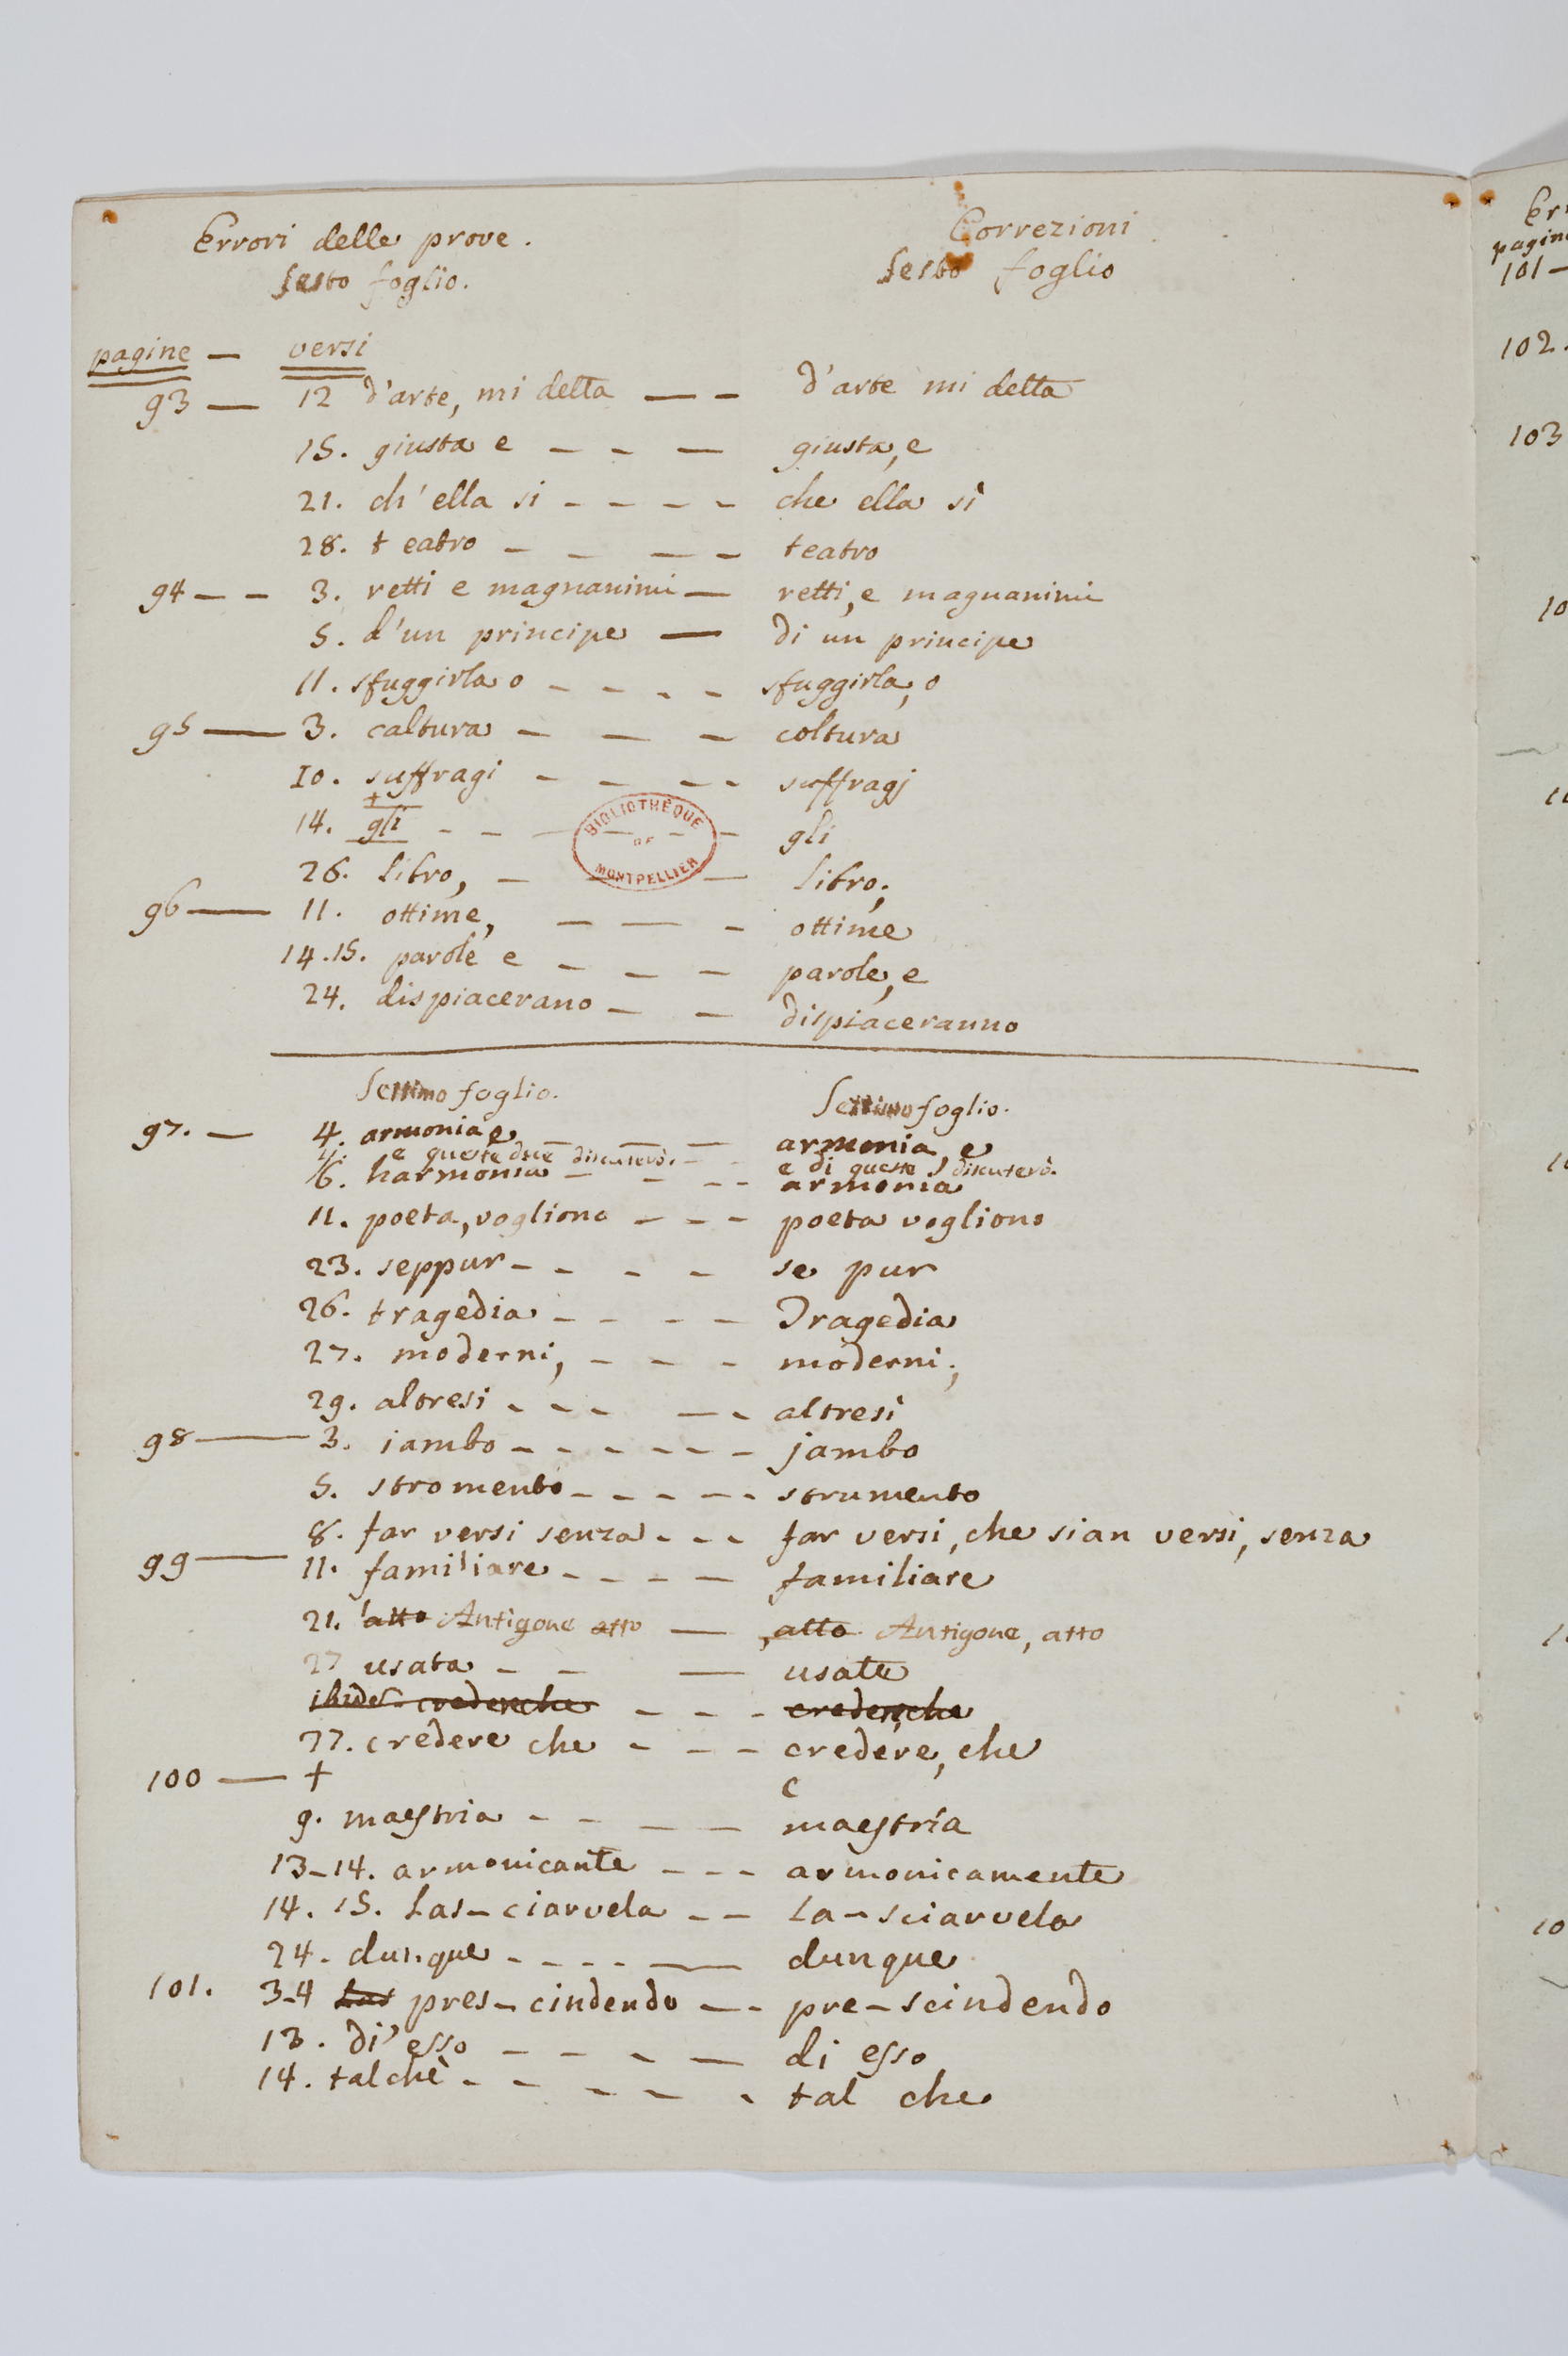 Errori delle prove. Correzioni
Sesto foglio. Sesto foglio
pagine — versi
93 — 12 d'arte, mi detta — — d'arte mi detta
15. giusta e — — — giusta, e
21. ch'ella si — — — — che ella si
28. t eatro — — — — teatro
94 — — 3. retti e magnanimi — retti, e magnanimi
5. d'un principe — di un principe
11. sfuggirla o — — — — sfuggirla, o
95 — 3. caltura — — — coltura
10. suffragi — — — — suffragj
+
14. gli — — — — — gli
BIBLIOTHÈQUE DE MONTPELLIER
26. libro, — — — libro;
96 — 11. ottime, — — — ottime
14.15. parole e — — — parole, e
24. dispiacerano — — dispiaceranno
Settimo foglio. Settimo foglio.
97. — 4. armonia e — — armonia, e
e queste due discuterò. — — e di queste discuterò.
6. harmonia — — — — armonia
11. poeta, vogliono — — — poeta vogliono
23. seppur — — — — se pur
26. tragedia — — — — Tragedia
27. moderni, — — — moderni;
29. altresi — — — — — altresì
98 — 3. iambo — — — — — — jambo
5. stromento — — — — — strumento
8. far versi senza — — — far versi, che sian versi, senza
99 — 11. familiare — — — — familiare
21. atto Antigone atto — , atto Antigone, atto
27 usata — — — usate
ibid. crederche — — — creder, che
27. credere che — — — credere, che
100 — + c
9. maestria — — — — maestría
13-14. armonicante — — — armonicamente
14. 15. Las-ciarvela — — La-sciarvela
24. dunque — — — — — dunque
101. 3-4 Las pres-cindendo — — pre-scindendo
13. di' esso — — — — di esso
14. talchè — — — — — tal che
Err
pagine
101 —
102.
103
10
10